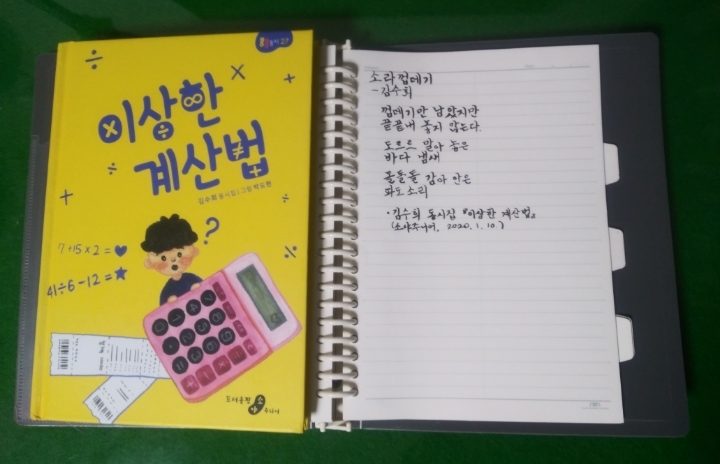 동시 27
이상한
계산법
김수희 동시집 | 그림 박도현
7+15×2=♥
41÷6-12=★
?
소라껍데기
-김수희
껍데기만 남았지만
끝끝내 놓지 않는다.
도르르 말아 놓은
바다 냄새
돌돌돌 감아 안은
파도 소리
· 김수희 동시집 『이상한 계산법』
(소야주니어, 2020. 1. 10.)
도서출판 소야 주니어